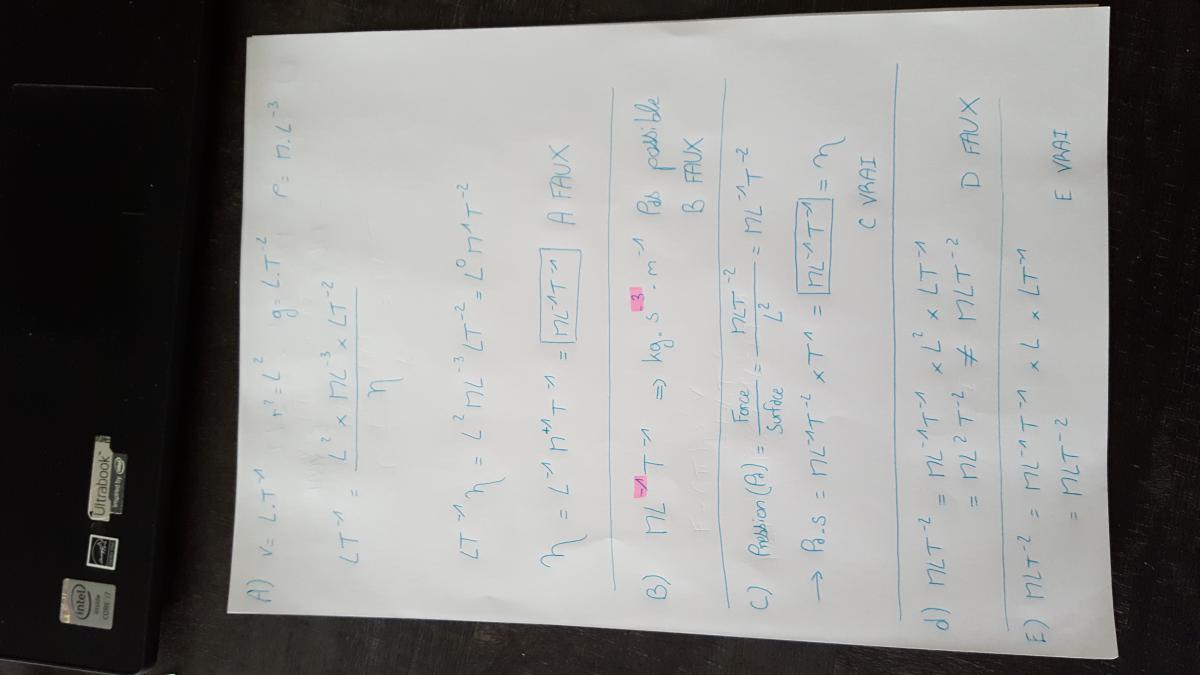 A) V = L.T⁻¹ r² = L² g = L.T⁻² ρ = M.L⁻³
LT⁻¹ = L² × ML⁻³ × LT⁻²
η
LT⁻¹ η = L² ML⁻³ LT⁻² = L⁰ M¹ T⁻²
η = L⁻¹ M⁺¹ T⁻¹ = ML⁻¹T⁻¹ A FAUX
B) ML⁻¹T⁻¹ ⇒ kg.s⁻³.m⁻¹ Pas possible
B FAUX
C) Pression (Pa) = Force / Surface = MLT⁻² / L² = ML⁻¹T⁻²
→ Pa.s = ML⁻¹T⁻² × T¹ = ML⁻¹T⁻¹ = η
C VRAI
d) MLT⁻² = ML⁻¹T⁻¹ × L² × LT⁻¹
= ML²T⁻² ≠ MLT⁻²
D FAUX
E) MLT⁻² = ML⁻¹T⁻¹ × L × LT⁻¹
= MLT⁻²
E VRAI
intel
inside
CORE i7
Ultrabook™
Inspired by intel